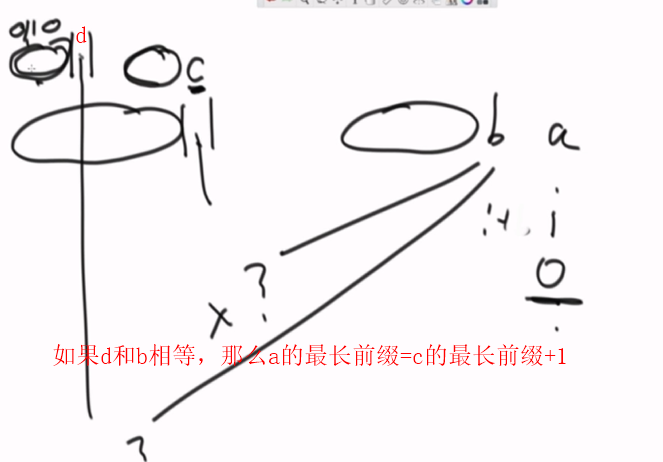 0110
d
c
b a
i
i+1
0
?
x
如果d和b相等，那么a的最长前缀=c的最长前缀+1
?